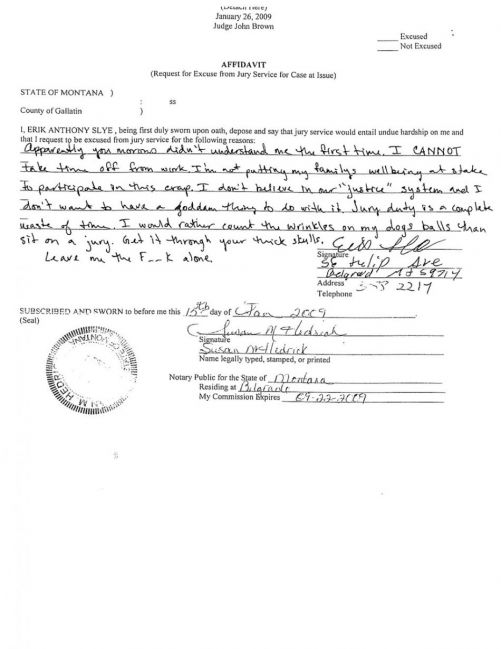 (Detach Here)
January 26, 2009
Judge John Brown
____ Excused
____ Not Excused
AFFIDAVIT
(Request for Excuse from Jury Service for Case at Issue)
STATE OF MONTANA )
: ss
County of Gallatin )
I, ERIK ANTHONY SLYE , being first duly sworn upon oath, depose and say that jury service would entail undue hardship on me and
that I request to be excused from jury service for the following reasons:
Apparently you morons didn't understand me the first time. I CANNOT
take time off from work. I'm not putting my familys wellbeing at stake
to participate in this crap. I don't believe in our "justice" system and I
don't want to have a goddam thing to do with it. Jury duty is a complete
waste of time. I would rather count the wrinkles on my dogs balls than
sit on a jury. Get it through your thick skulls.
Leave me the F__k alone.
Signature
56 Tulip Ave
Belgrade 59714
Address
2217
Telephone
SUBSCRIBED AND SWORN to before me this 15th day of Jan 2009
(Seal)
Signature
Susan M Hedrick
Name legally typed, stamped, or printed
Notary Public for the State of Montana
Residing at Belgrade
My Commission Expires 09-22-2009